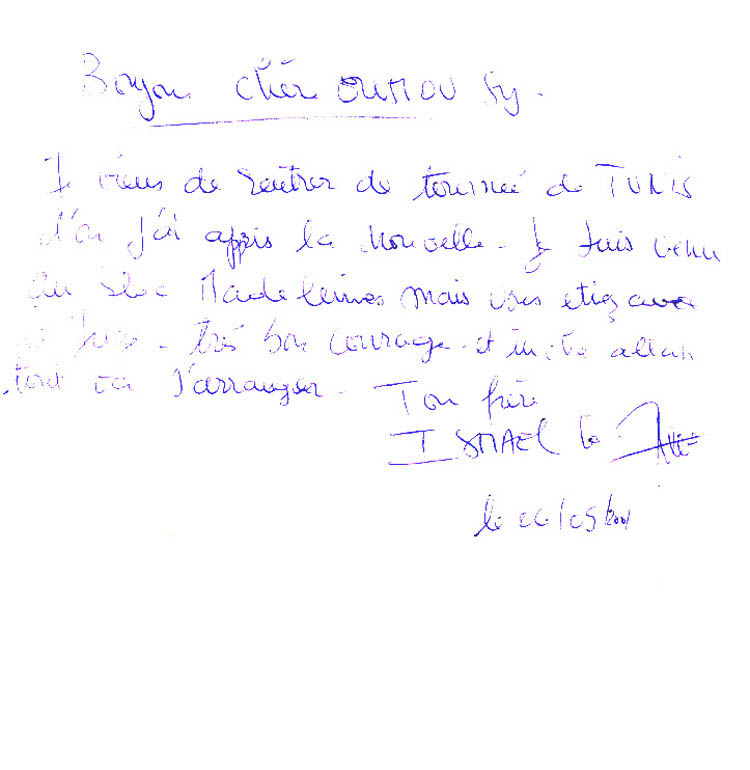 Bonjour chère OUMOU Sy.
Je viens de rentrer de tournée de TUNIS
d'où j'ai appris la nouvelle. Je suis venu
au bloc Madeleines mais vous etiez avec
très bon courage et incha allah
tout va s'arranger. Ton frère
ISMAEL Lo
le 06/09/2001